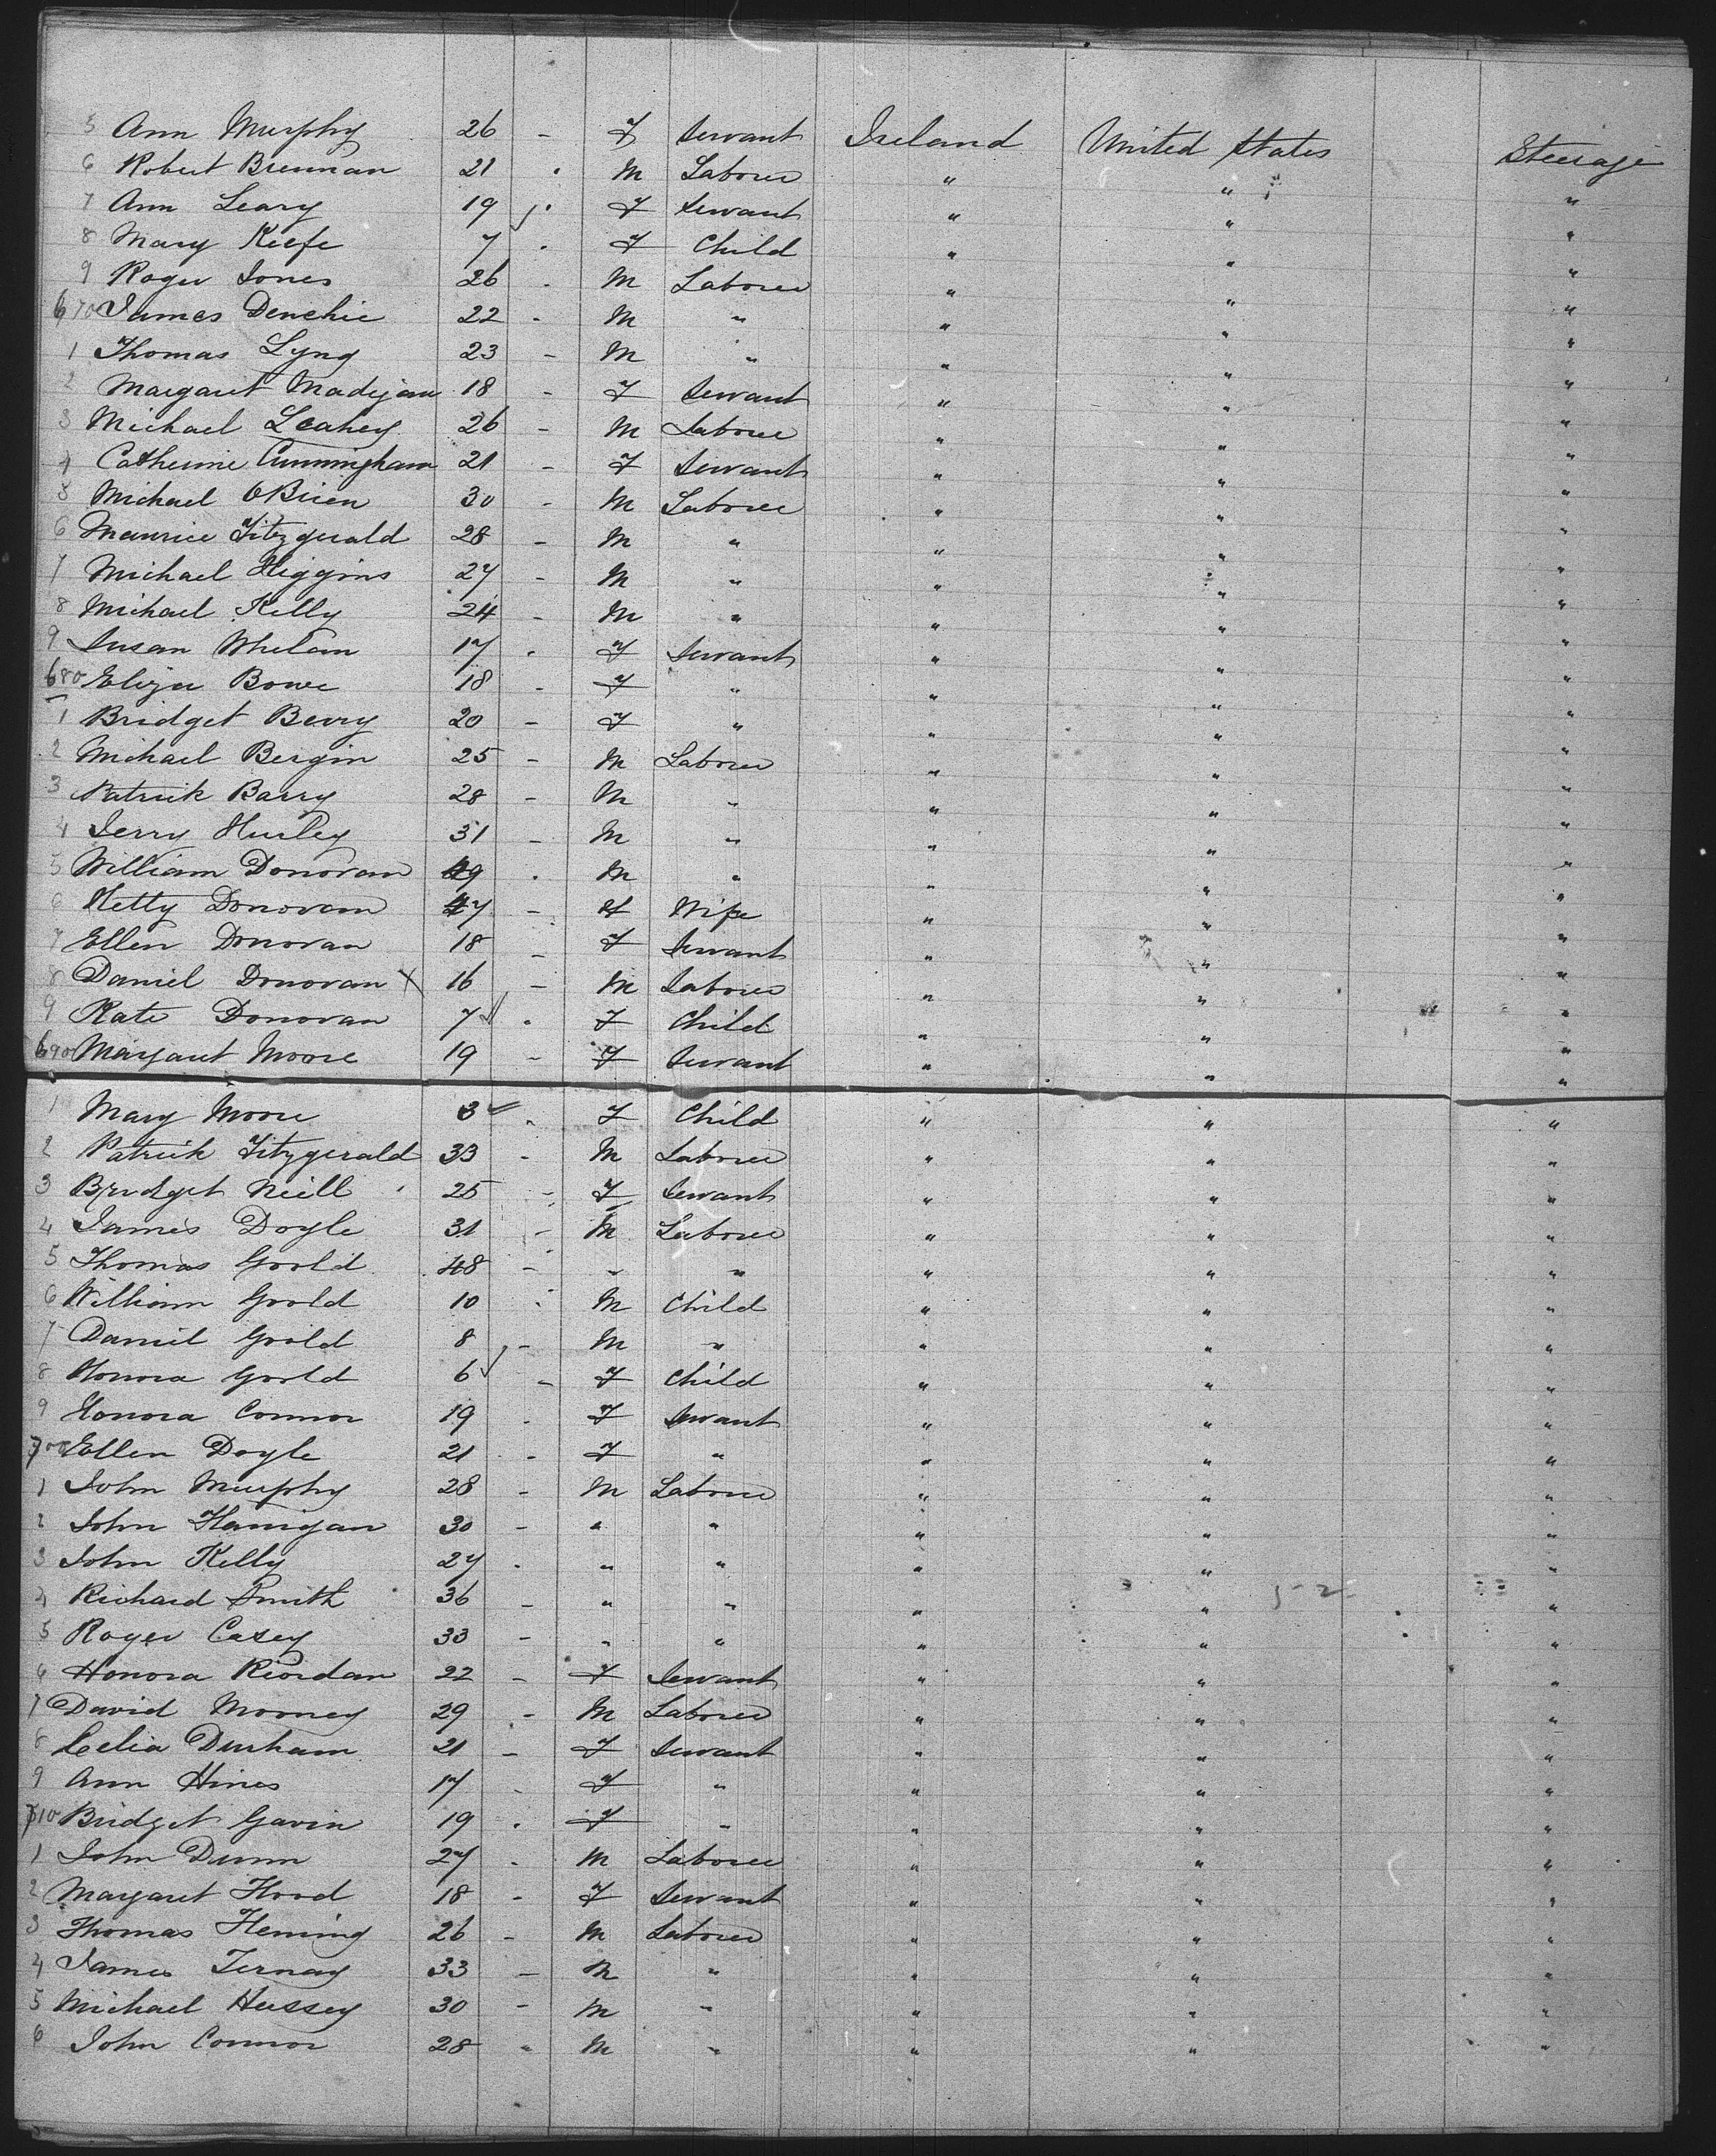 5 Ann Murphy 26 - F Servant Ireland United States Steerage
6 Robert Brennan 21 - M Laborer " " "
7 Ann Leary 19 - F Servant " " "
8 Mary Keefe 7 - F Child " " "
9 Roger Jones 26 - M Laborer " " "
670 James Denehie 22 - M " " " "
1 Thomas Lyng 23 - M " " " "
2 Margaret Madigan 18 - F Servant " " "
3 Michael Leahey 26 - M Laborer " " "
4 Catherine Cunningham 21 - F Servant " " "
5 Michael OBrien 30 - M Laborer " " "
6 Maurice Fitzgerald 28 - M " " " "
7 Michael Higgins 27 - M " " " "
8 Michael Kelly 24 - M " " " "
9 Susan Whelan 17 - F Servant " " "
680 Eliza Bowe 18 - F " " " "
1 Bridget Berry 20 - F " " " "
2 Michael Bergin 25 - M Laborer " " "
3 Patrick Barry 28 - M " " " "
4 Jerry Hurley 31 - M " " " "
5 William Donovan 49 - M " " " "
6 Hetty Donovan 47 - F Wife " " "
7 Ellen Donovan 18 - F Servant " " "
8 Daniel Donovan X 16 - M Laborer " " "
9 Kate Donovan 7 - F Child " " "
690 Margaret Moore 19 - F Servant " " "
1 Mary Moore 3 - F Child " " "
2 Patrick Fitzgerald 33 - M Laborer " " "
3 Bridget Neill 25 - F Servant " " "
4 James Doyle 31 - M Laborer " " "
5 Thomas Goold 48 - " " " " "
6 William Goold 10 - M Child " " "
7 Daniel Goold 8 - M " " " "
8 Honora Goold 6 - F Child " " "
9 Honora Connor 19 - F Servant " " "
700 Ellen Doyle 21 - F " " " "
1 John Murphy 28 - M Laborer " " "
2 John Hanigan 30 - " " " " "
3 John Kelly 27 - " " " " "
4 Richard Smith 36 - " " " " "
5 Roger Casey 33 - " " " " "
6 Honora Riordan 22 - F Servant " " "
7 David Mooney 29 - M Laborer " " "
8 Celia Durham 21 - F Servant " " "
9 Ann Hines 17 - F " " " "
710 Bridget Gavin 19 - F " " " "
1 John Dunn 27 - M Laborer " " "
2 Margaret Hood 18 - F Servant " " "
3 Thomas Fleming 26 - M Laborer " " "
4 James Ternay 33 - M " " " "
5 Michael Hussey 30 - M " " " "
6 John Connor 28 - M " " " "